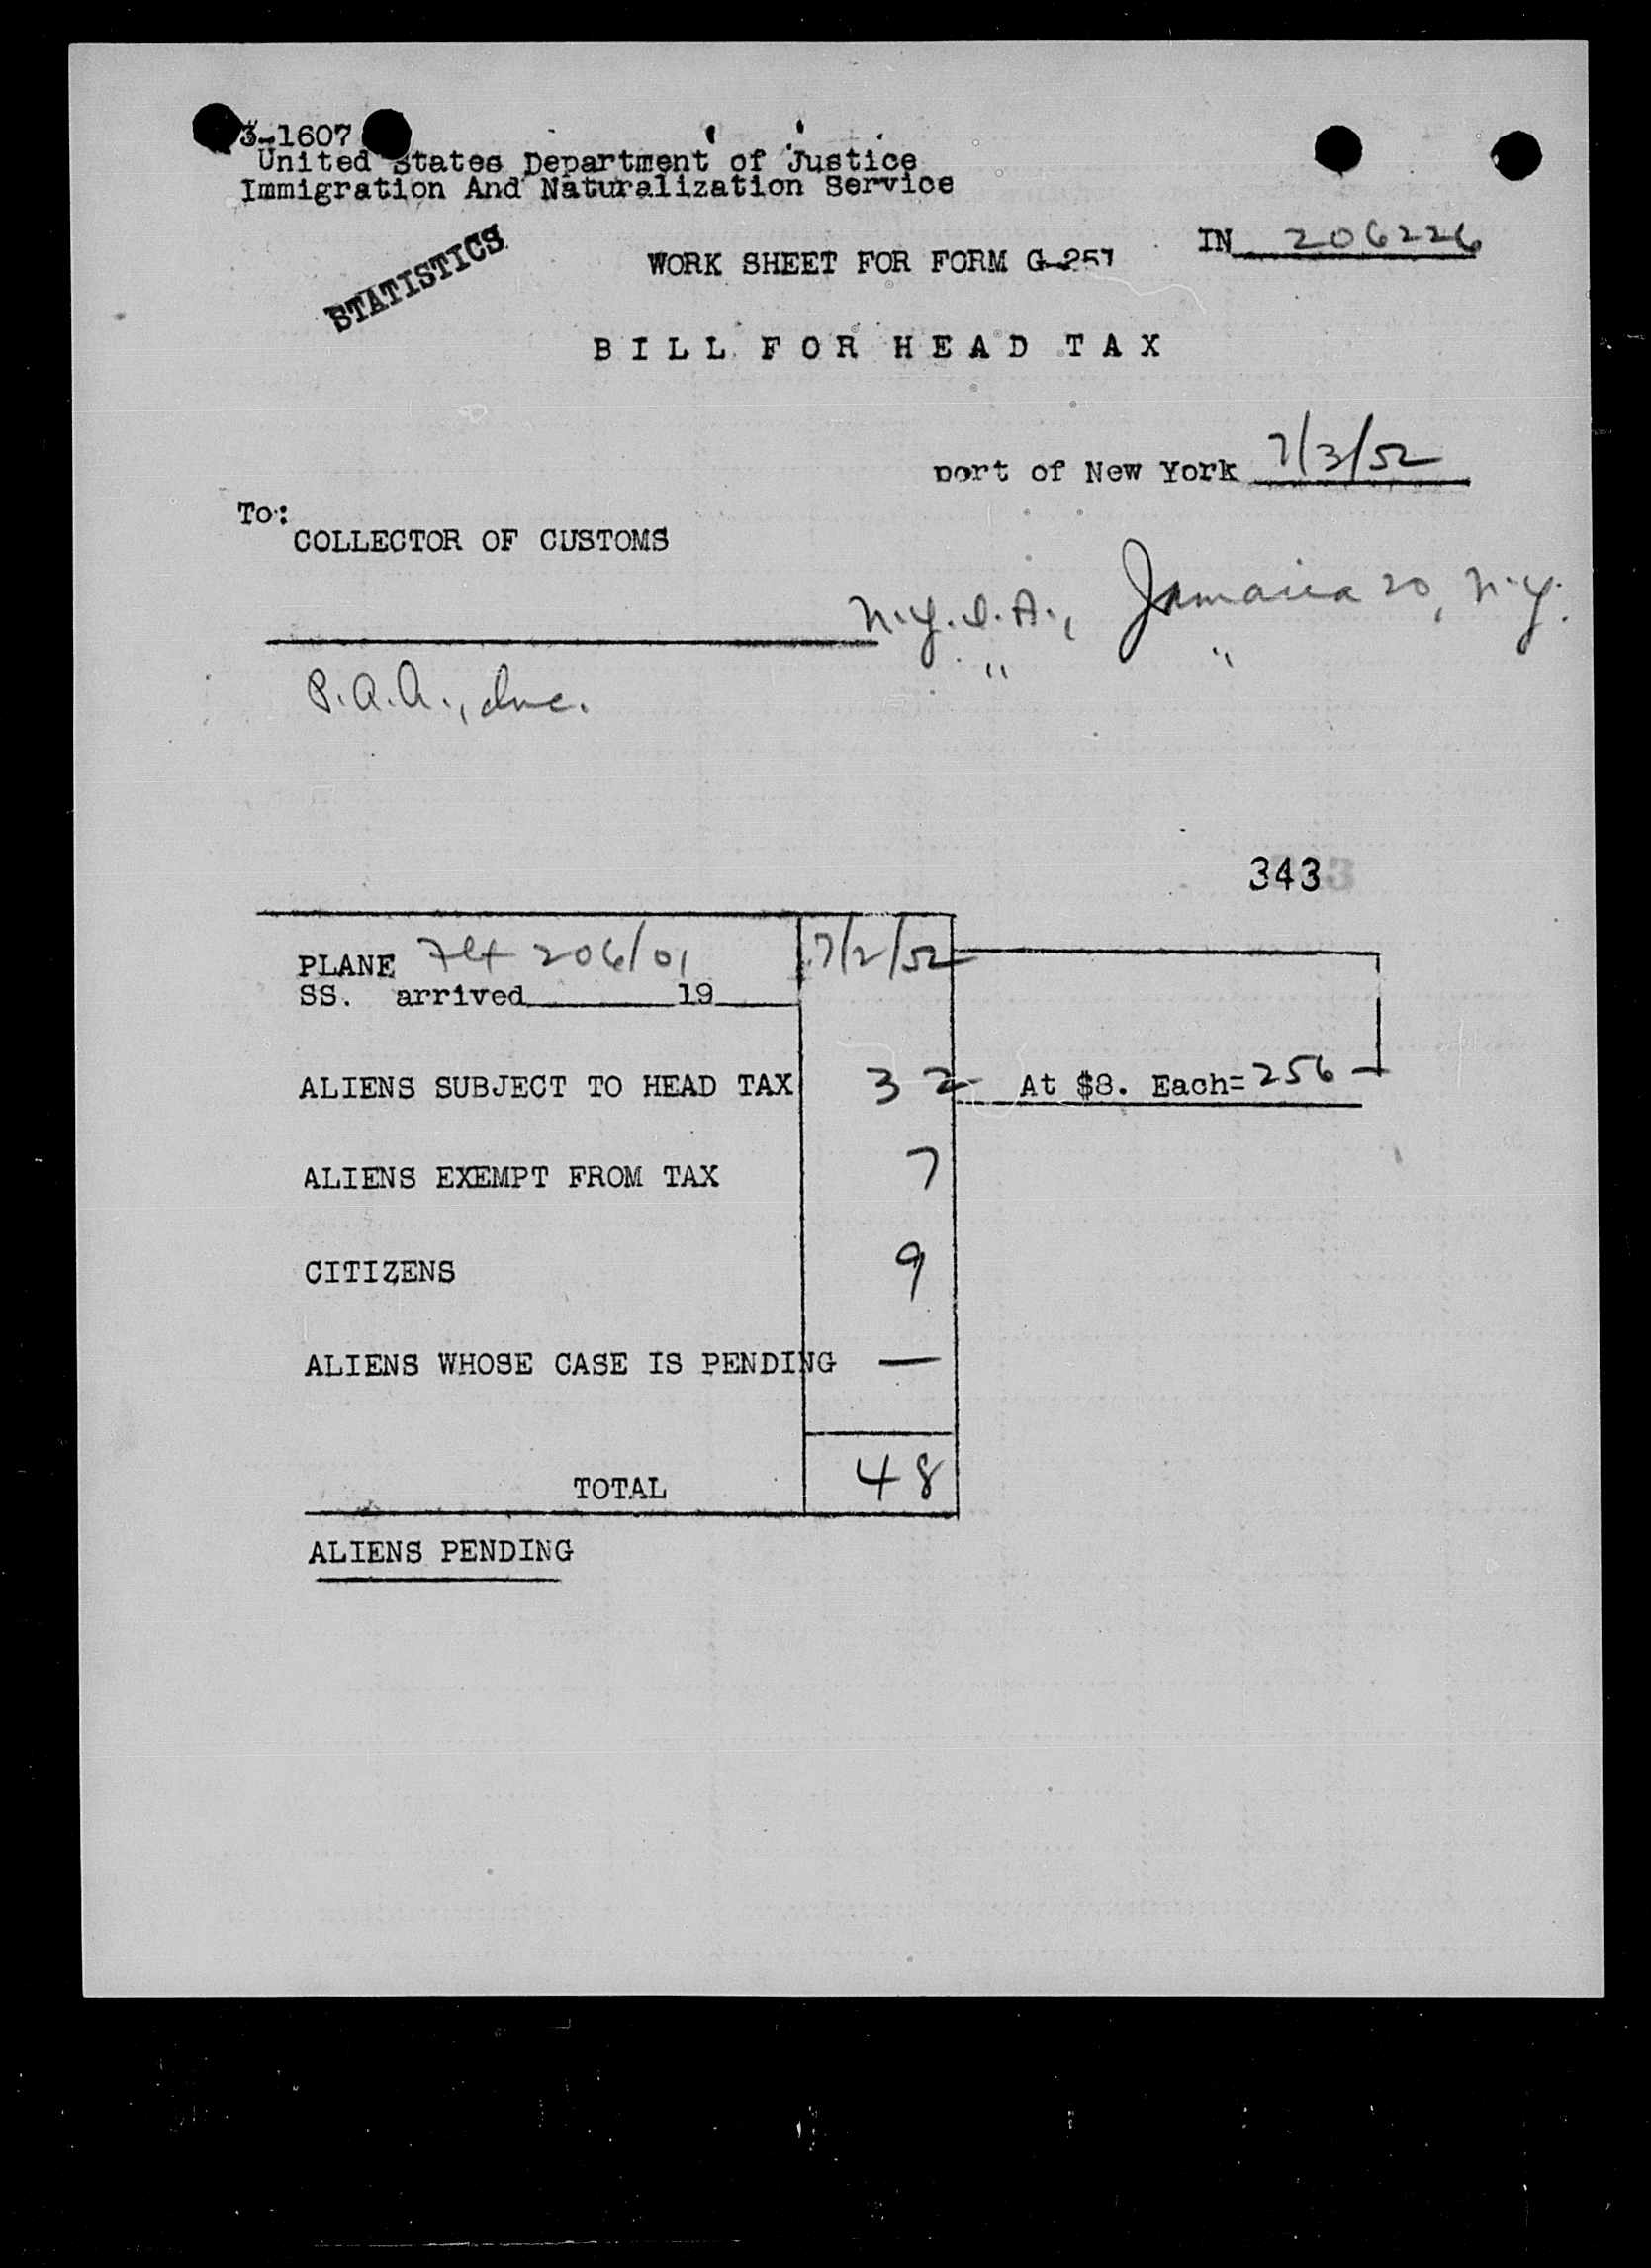 3-1607
United States Department of Justice
Immigration And Naturalization Service
STATISTICS
WORK SHEET FOR FORM G-257
IN 206226
BILL FOR HEAD TAX
port of New York 7/3/52
To:
COLLECTOR OF CUSTOMS
N.Y.I.A., Jamaica 20, N.Y.
" "
P.A.A., Inc.
343
PLANE Flt 206/01 7/2/52
SS. arrived 19
ALIENS SUBJECT TO HEAD TAX 32 At $8. Each= 256
ALIENS EXEMPT FROM TAX 7
CITIZENS 9
ALIENS WHOSE CASE IS PENDING —
TOTAL 48
ALIENS PENDING